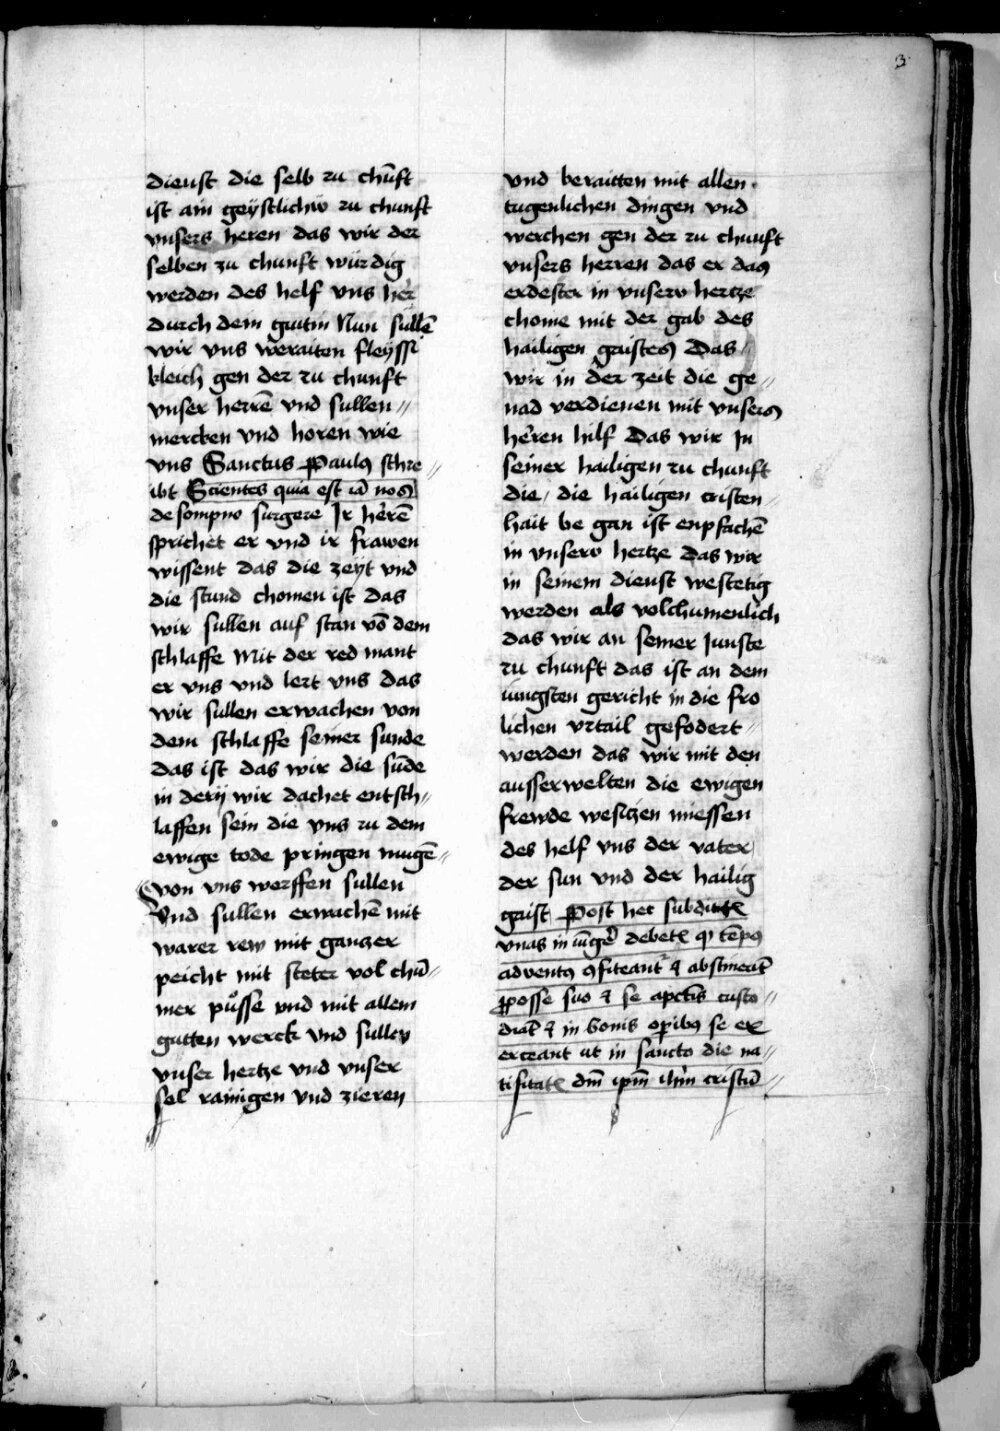 3
dienst die selb zu chūft
ist ain geystlichiv zu chunft
vnsers heren das wir der
selben zu chunft würdig
werden des helf vns her
durch dem gutin Nun sullē
wir vns weraiten fleyssi
kleich gen der zu chunft
vnser herrē vnd sullen //
mercken vnd horen wie
vns Sanctus Paulꝰ schre //
ibt Scientes quia est iā nos
de sompno surgere Ir herē
sprichet er vnd ir frawen
wissent das die zeyt vnd
die stund chomen ist das
wir sullen auf stan vō dem
schlaffe Mit der red mant
er vns vnd lert vns das
wir sullen erwachen von
dem schlaffe seiner sunde
das ist das wir die sūde
in derij wir dachet entsch //
laffen sein die vns zu dem
ewige tode pringen mugē //
von vns werffen sullen
Vnd sullen erwachē mit
warer rew mit gantzer
peicht mit steter vol chū //
mer půsse vnd mit allem
gutten werck vnd sullen
vnser hertze vnd vnser
sel rainigen vnd zieren
vnd beraitten mit allen
tugenlichen dingen vnd
werchen gen der zu chunft
vnsers herren das er das
erdester in vnserv hertze
chome mit der gab des
hailigen gaistes Das //
wir in der zeit die ge //
nad verdienen mit vnsers
heren hilf Das wir In
seiner hailigen zu chunft
die / die hailigen cristen //
hait be gan ist enpfachē
in vnserv hertze das wir
in seinem dienst westetig
werden als volchumenlich
das wir an seiner Junste
zu chunft das ist an dem
iungsten gericht in die fro
lichen vrtail gefodert //
werden das wir mit den
ausserwelten die ewigen
frewde wesitzen miessen
des helf vns der vater
der sun vnd der hailig
gaist Post hec
in debetꝭ ꝙ tēpꝰ
adventꝰ ꝯfiteant ⁊ abstineāt
ꝓposse suo ⁊ se custo //
diāt ⁊ in bonis oꝑibꝰ se ex
erceant ut in sancto die na //
tiuitatꝭ dn̄m ip̄m ih̄m cristū //